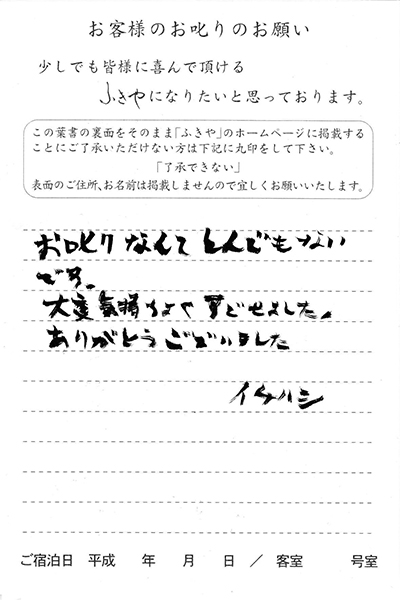 お客様のお叱りのお願い
少しでも皆様に喜んで頂ける
ふきやになりたいと思っております。
この葉書の裏面をそのまま「ふきや」のホームページに掲載する
ことにご了承いただけない方は下記に丸印をして下さい。
「了承できない」
表面のご住所、お名前は掲載しませんので宜しくお願いいたします。
お叱りなんてとんでもない
です。
大変気持ちよくすごせました。
ありがとうございました
イケハシ
ご宿泊日 平成 年 月 日 ／ 客室 号室